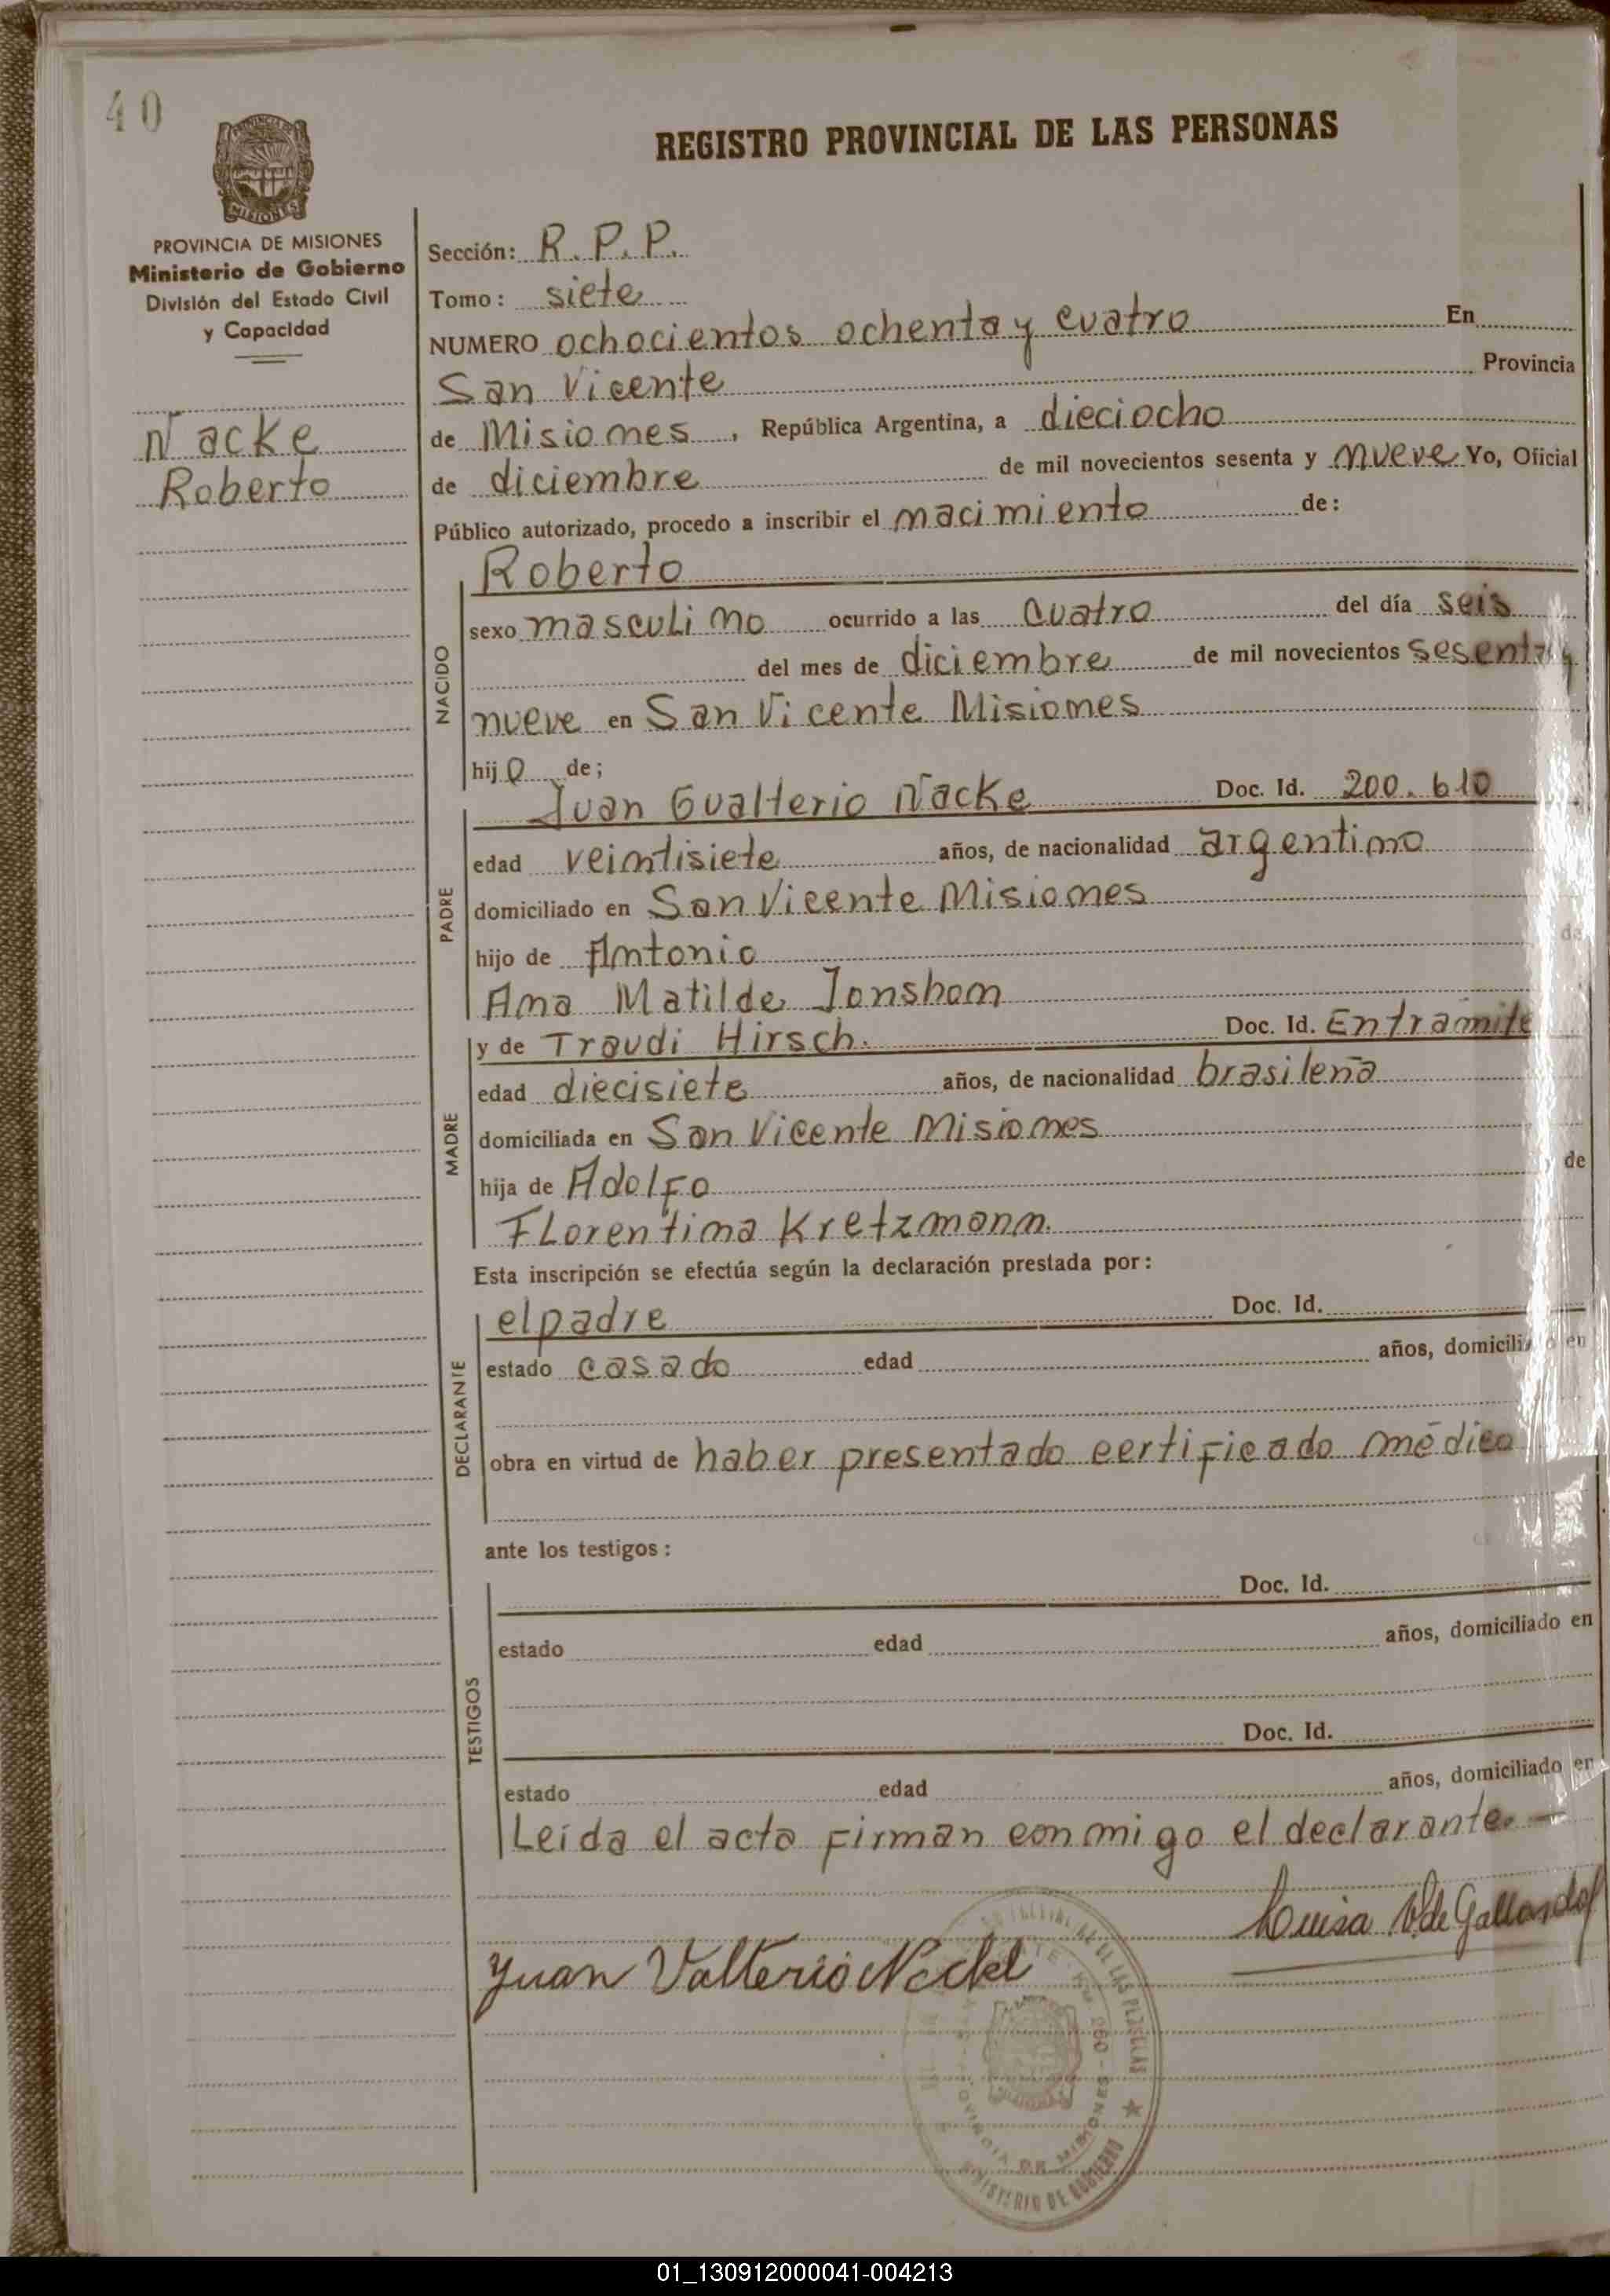 40
REGISTRO PROVINCIAL DE LAS PERSONAS
MISIONES
PROVINCIA DE MISIONES
Ministerio de Gobierno
División del Estado Civil
y Capacidad
Nacke
Roberto
Sección: R. P. P.
Tomo: siete
NUMERO ochocientos ochenta y cuatro En
San Vicente Provincia
de Misiones, República Argentina, a dieciocho
de diciembre de mil novecientos sesenta y nueve Yo, Oficial
Público autorizado, procedo a inscribir el nacimiento de:
NACIDO
Roberto
sexo masculino ocurrido a las cuatro del día seis
del mes de diciembre de mil novecientos sesenta y
nueve en San Vicente Misiones
hijo de;
PADRE
Juan Gualterio Nacke Doc. Id. 200.610
edad veintisiete años, de nacionalidad argentino
domiciliado en San Vicente Misiones
hijo de Antonio de
Ana Matilde Jonshon
MADRE
y de Traudi Hirsch. Doc. Id. En trámite
edad diecisiete años, de nacionalidad brasileña
domiciliada en San Vicente Misiones
hija de Adolfo y de
Florentina Kretzmann.
Esta inscripción se efectúa según la declaración prestada por:
DECLARANTE
el padre Doc. Id.
estado casado edad años, domiciliado en
obra en virtud de haber presentado certificado médico
ante los testigos:
TESTIGOS
Doc. Id.
estado edad años, domiciliado en
Doc. Id.
estado edad años, domiciliado en
Leída el acta firman conmigo el declarante.—
Luisa V. de Gallardo
Juan Valterio Nackel
MINISTERIO DE GOBIERNO
PROVINCIA DE MISIONES
01_130912000041-004213